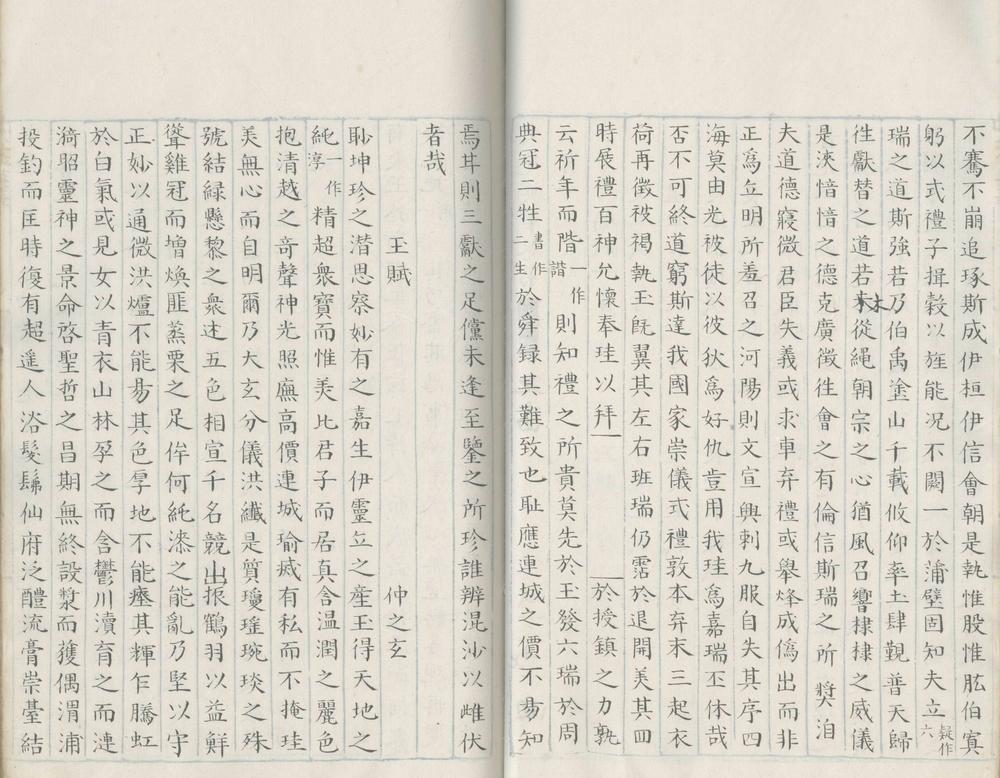 不騫不崩追琢斯成伊桓伊信會朝是執惟股惟肱伯寘
躬以式禮子揖穀以旌能况不闕一於蒲壁固知夫立疑作六
瑞之道斯強若乃伯禹塗山千載攸仰率土肆覲普天歸
徃獻替之道若木從繩朝宗之心猶風召響棣棣之威儀
是浹愔愔之德克廣徵徃會之有倫信斯瑞之所奬洎
夫道德寢微君臣失義或求車弃禮或舉烽成僞出而非
正爲丘明所羞召之河陽則文宣興刺九服自失其序四
海莫由光被徒以彼狄爲好仇豈用我珪爲嘉瑞丕休哉
否不可終道窮斯達我國家崇儀式禮敦本弃末三起衣
荷再徵被褐執玉旣翼其左右班瑞仍霑於退開美其四
時展禮百神允懷奉珪以拜 於授鎮之力孰
云祈年而階一作諧則知禮之所貴莫先於玉發六瑞於周
典冠二牲書作二生於舜録其難致也恥應連城之價不昜知
焉其則三獻之足儻未逢至鑒之所珍誰辨混沙以雌伏
者哉
玉賦 仲之玄
眇坤珍之潜思察妙有之嘉生伊靈丘之産玉得天地之
純一作淳精超衆寶而惟美比君子而居真含温潤之麗色
抱清越之竒聲神光照廡高價連城瑜瑊有私而不掩珪
美無心而自明爾乃大玄分儀洪纖是質瓊瑤琬琰之殊
號結緑懸黎之衆迬五色相宣千名競出振鶴羽以益鮮
聳雞冠而增煥匪蒸栗之足侔何純漆之能亂乃堅以守
正妙以通微洪爐不能昜其色厚地不能瘞其輝乍騰虹
於白氣或見女以青衣山林孕之而含鬱川瀆育之而漣
漪昭靈神之景命啓聖哲之昌期無終設漿而獲偶渭浦
投釣而匡時復有超遥人浴髪髴仙府泛醴流膏崇臺結